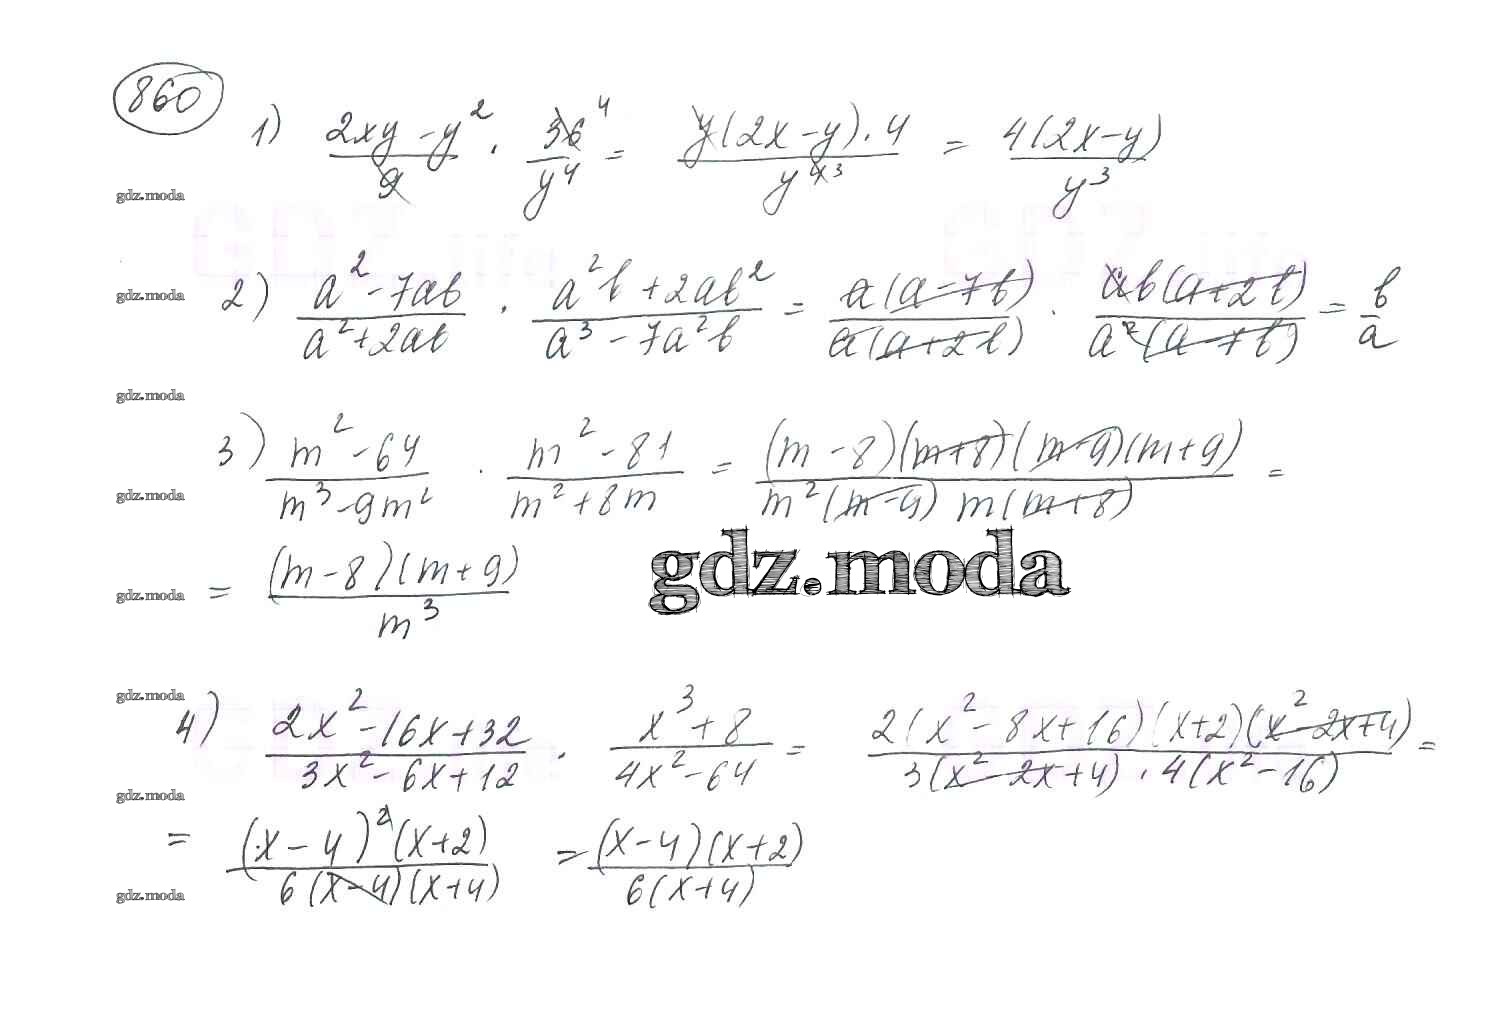 860
1) (2xy - y²)/9 · 36⁴/y⁴ = y(2x - y)·4/y⁴³ = 4(2x - y)/y³
gdz.moda
GDZ.life GDZ.life
2) (a² - 7ab)/(a² + 2ab) · (a²b + 2ab²)/(a³ - 7a²b) = a(a - 7b)/a(a + 2b) · ab(a + 2b)/a²(a - 7b) = b/a
gdz.moda
gdz.moda
3) (m² - 64)/(m³ - 9m²) · (m² - 81)/(m² + 8m) = (m - 8)(m + 8)(m - 9)(m + 9)/m²(m - 9) m(m + 8) =
gdz.moda
gdz.moda
= (m - 8)(m + 9)/m³
gdz.moda
gdz.moda
4) (2x² - 16x + 32)/(3x² - 6x + 12) · (x³ + 8)/(4x² - 64) = 2(x² - 8x + 16)(x + 2)(x² - 2x + 4)/3(x² - 2x + 4) · 4(x² - 16) =
gdz.moda
= (x - 4)²(x + 2)/6(x - 4)(x + 4) = (x - 4)(x + 2)/6(x + 4)
gdz.moda